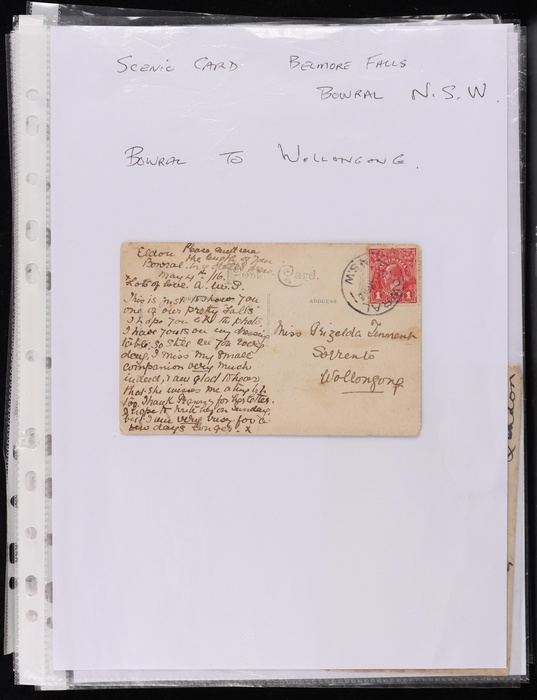 SCENIC CARD BELMORE FALLS
BOWRAL N.S.W.
BOWRAL TO WOLLONGONG.
Please send me
the length of your
Eldon
Bowral
May 4th 16.
Lots of love. A.M.S.
Post Card.
ADDRESS
This is just to show you
one of our pretty Falls
I hope you like the photo.
I have yours on my dressing
table, so still see you every
day, I miss my small
companion very much
indeed, I am glad to hear
that she misses me a tiny bit
too. Thank Granny for her letter.
I hope to write her on Sunday,
but I am very busy for a
few days longer. x
Miss Grizelda Tennent
Sorrento
Wollongong
BOWRAL
N.S.W
1 1